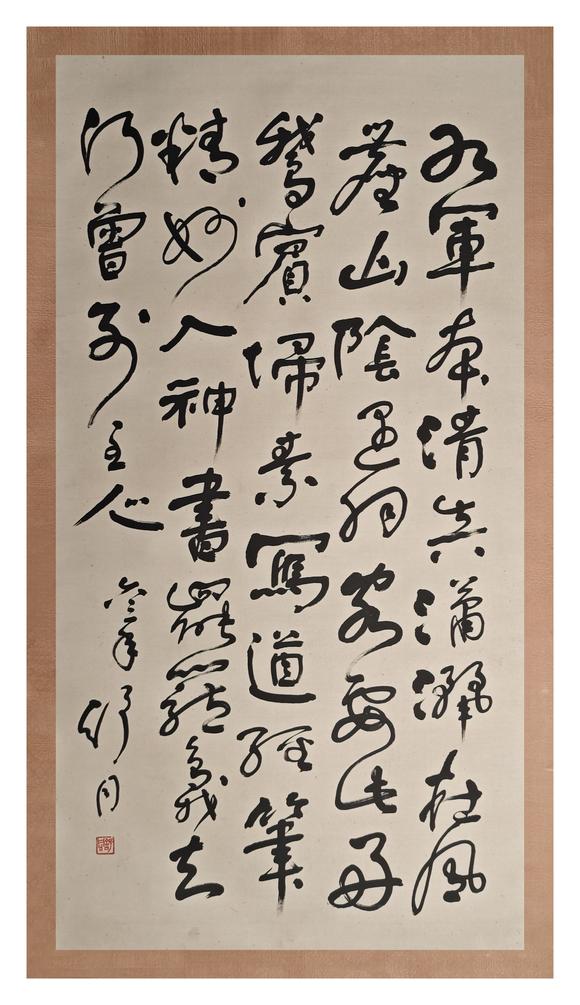 右軍本清真瀟灑在風
塵山陰遇羽客要此好
鵞賓掃素寫道經筆
精妙入神書罷籠鵝去
何曾別主人 年舒同